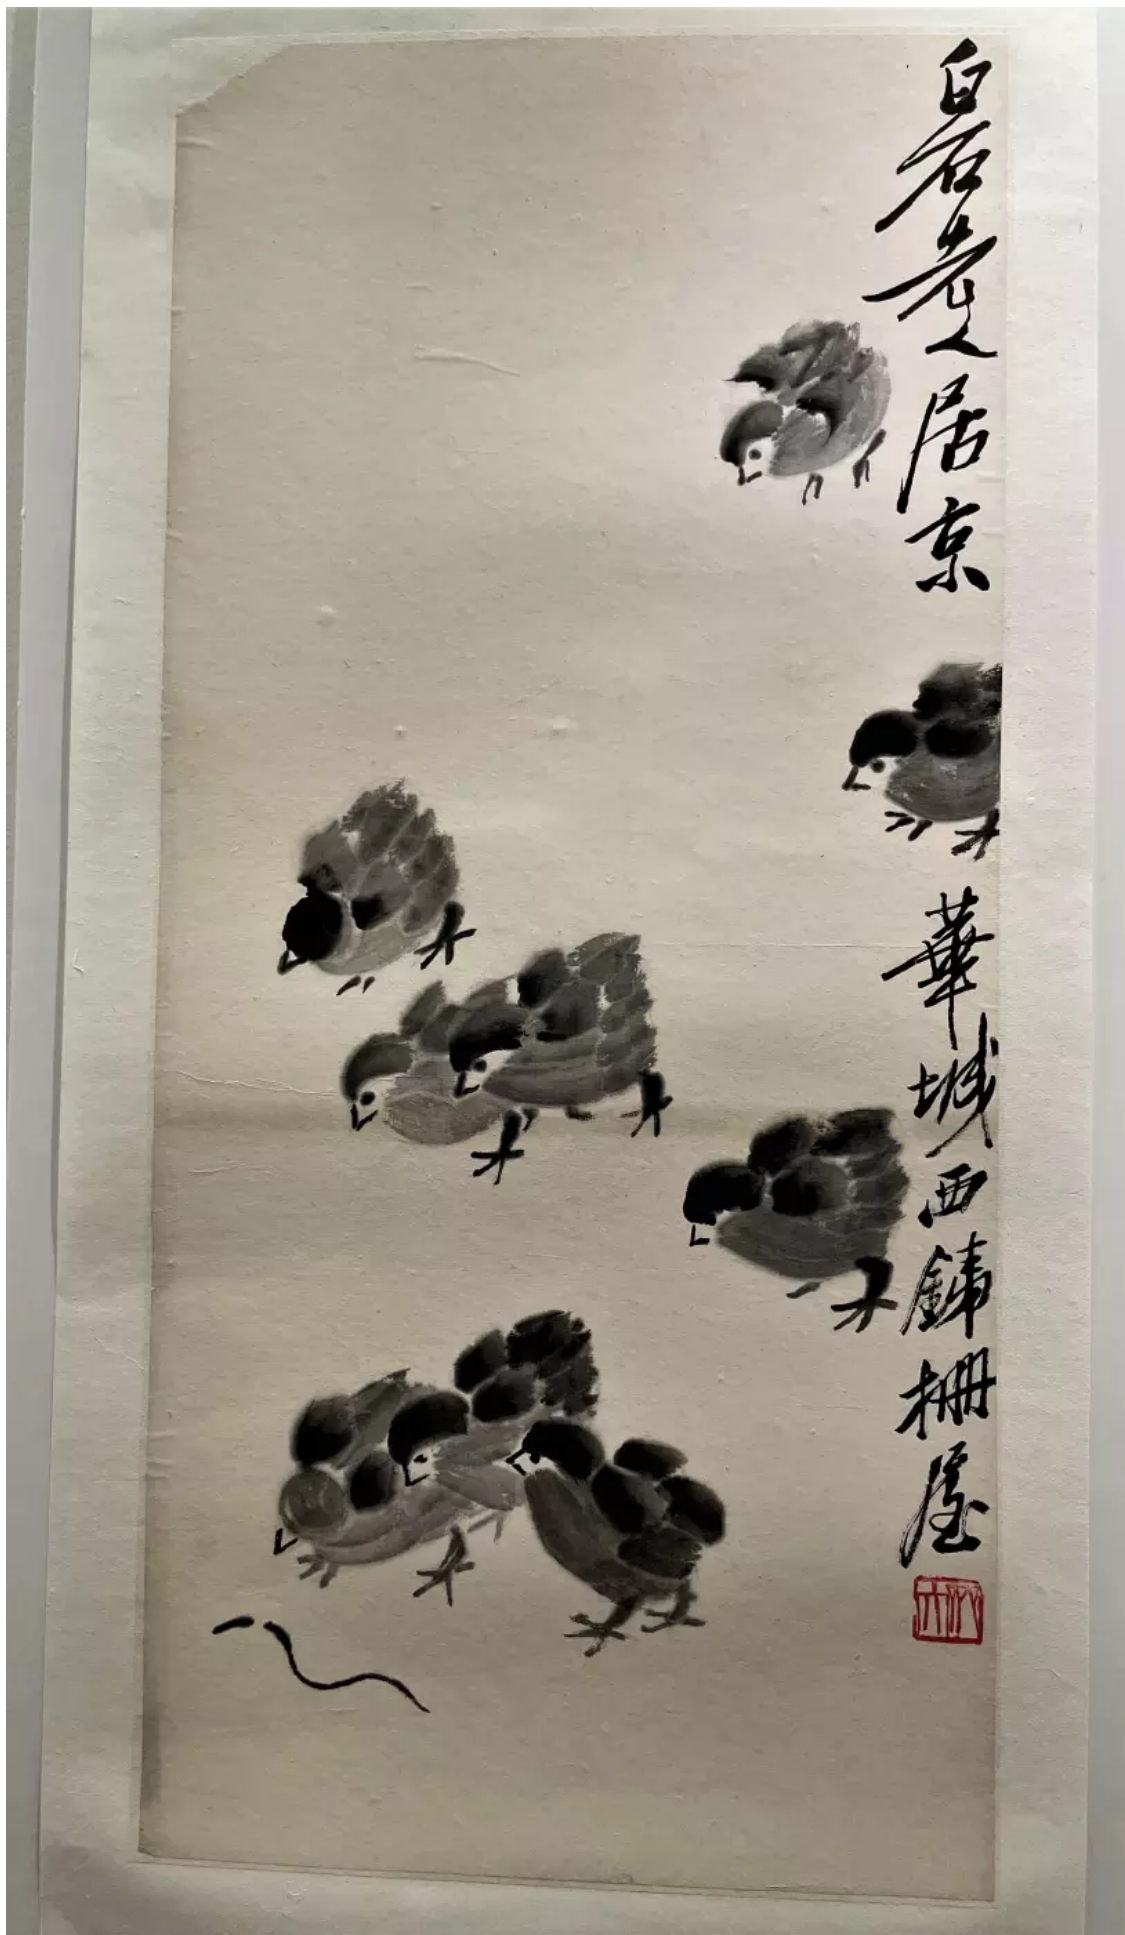 白石老人居京
華城西鐵柵屋
木人